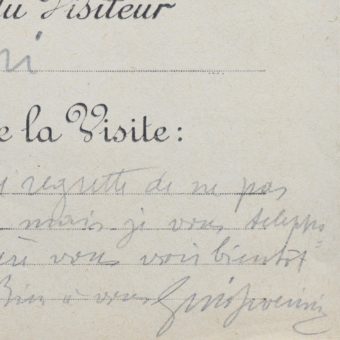 du Visiteur
ri
e la Visite:
regrette de ne pas
mais je vous télépho-
vous voir bientôt
Bien à vous